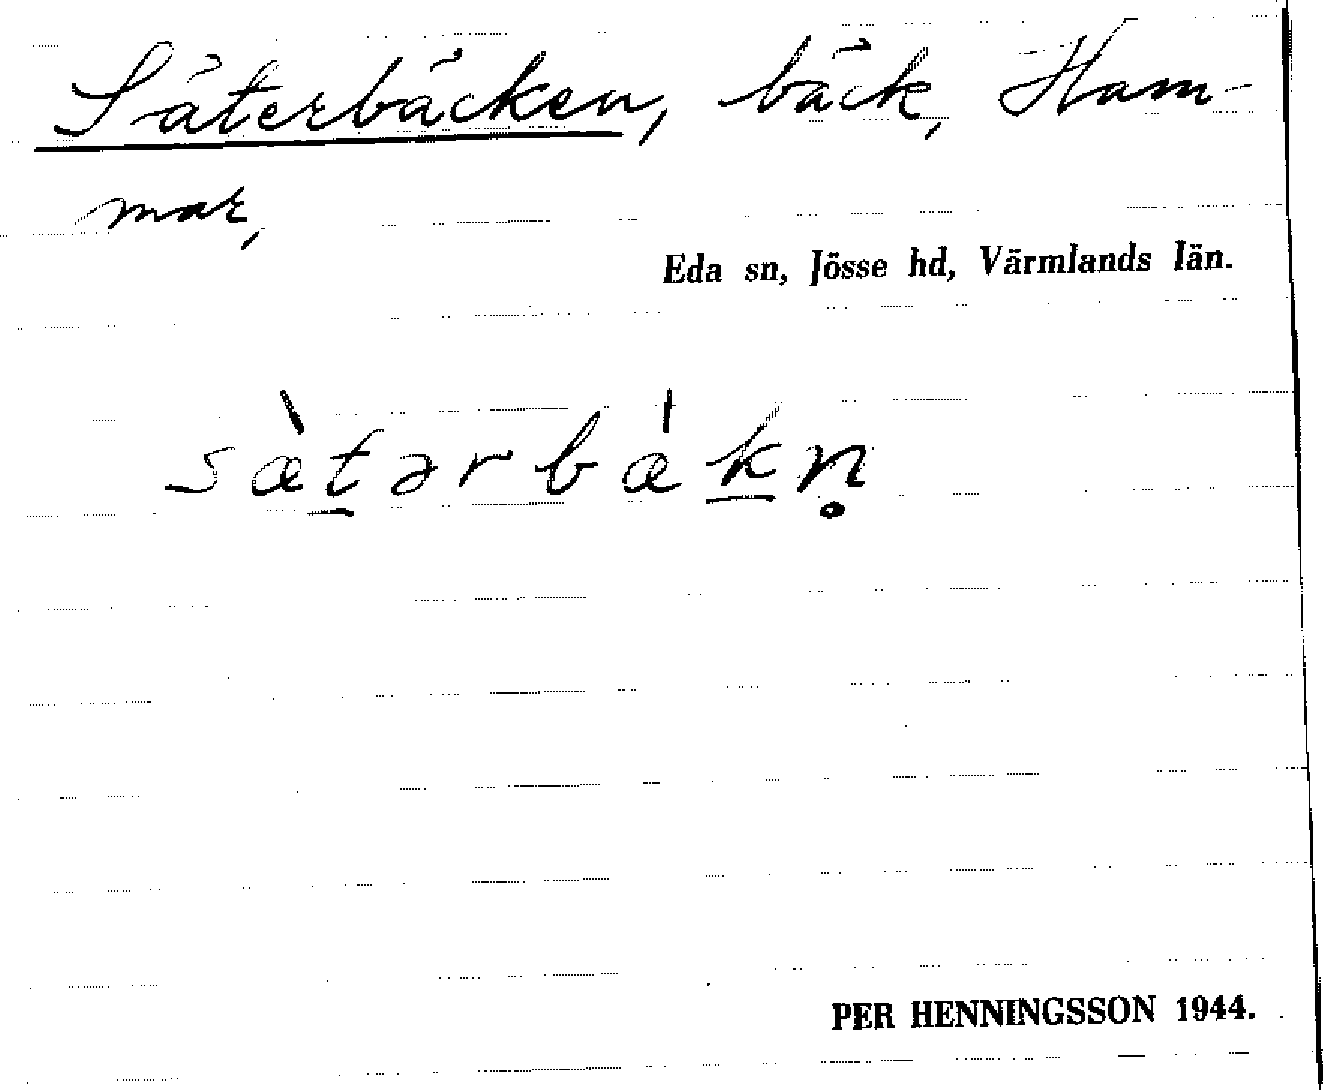 Säterbäcken, bäck, Ham-
mar,
Eda sn, Jösse hd, Värmlands län.
sæ̀t̲ərbǽk̲n̥
PER HENNINGSSON 1944.